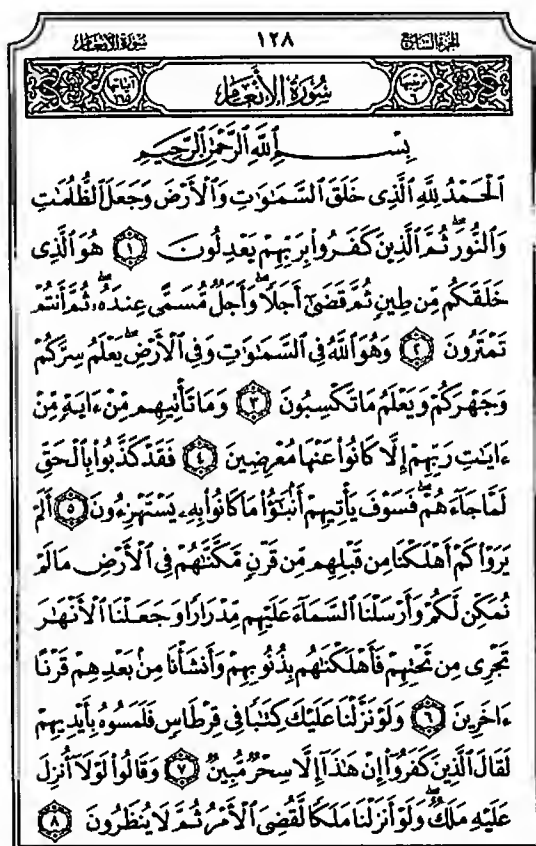 الجزء السابع ١٢٨ سورة الأنعام
ترتيبها ٦ سُورَةُ الأَنْعَامِ آياتها ١٦٥
بِسْمِ ٱللَّهِ ٱلرَّحْمَٰنِ ٱلرَّحِيمِ
ٱلْحَمْدُ لِلَّهِ ٱلَّذِى خَلَقَ ٱلسَّمَٰوَٰتِ وَٱلْأَرْضَ وَجَعَلَ ٱلظُّلُمَٰتِ
وَٱلنُّورَ ۖ ثُمَّ ٱلَّذِينَ كَفَرُوا۟ بِرَبِّهِمْ يَعْدِلُونَ ١ هُوَ ٱلَّذِى
خَلَقَكُم مِّن طِينٍ ثُمَّ قَضَىٰٓ أَجَلًا ۖ وَأَجَلٌ مُّسَمًّى عِندَهُۥ ۖ ثُمَّ أَنتُمْ
تَمْتَرُونَ ٢ وَهُوَ ٱللَّهُ فِى ٱلسَّمَٰوَٰتِ وَفِى ٱلْأَرْضِ ۖ يَعْلَمُ سِرَّكُمْ
وَجَهْرَكُمْ وَيَعْلَمُ مَا تَكْسِبُونَ ٣ وَمَا تَأْتِيهِم مِّنْ ءَايَةٍ مِّنْ
ءَايَٰتِ رَبِّهِمْ إِلَّا كَانُوا۟ عَنْهَا مُعْرِضِينَ ٤ فَقَدْ كَذَّبُوا۟ بِٱلْحَقِّ
لَمَّا جَآءَهُمْ ۖ فَسَوْفَ يَأْتِيهِمْ أَنۢبَٰٓؤُا۟ مَا كَانُوا۟ بِهِۦ يَسْتَهْزِءُونَ ٥ أَلَمْ
يَرَوْا۟ كَمْ أَهْلَكْنَا مِن قَبْلِهِم مِّن قَرْنٍ مَّكَّنَّٰهُمْ فِى ٱلْأَرْضِ مَا لَمْ
نُمَكِّن لَّكُمْ وَأَرْسَلْنَا ٱلسَّمَآءَ عَلَيْهِم مِّدْرَارًا وَجَعَلْنَا ٱلْأَنْهَٰرَ
تَجْرِى مِن تَحْتِهِمْ فَأَهْلَكْنَٰهُم بِذُنُوبِهِمْ وَأَنشَأْنَا مِنۢ بَعْدِهِمْ قَرْنًا
ءَاخَرِينَ ٦ وَلَوْ نَزَّلْنَا عَلَيْكَ كِتَٰبًا فِى قِرْطَاسٍ فَلَمَسُوهُ بِأَيْدِيهِمْ
لَقَالَ ٱلَّذِينَ كَفَرُوٓا۟ إِنْ هَٰذَآ إِلَّا سِحْرٌ مُّبِينٌ ٧ وَقَالُوا۟ لَوْلَآ أُنزِلَ
عَلَيْهِ مَلَكٌ ۖ وَلَوْ أَنزَلْنَا مَلَكًا لَّقُضِىَ ٱلْأَمْرُ ثُمَّ لَا يُنظَرُونَ ٨